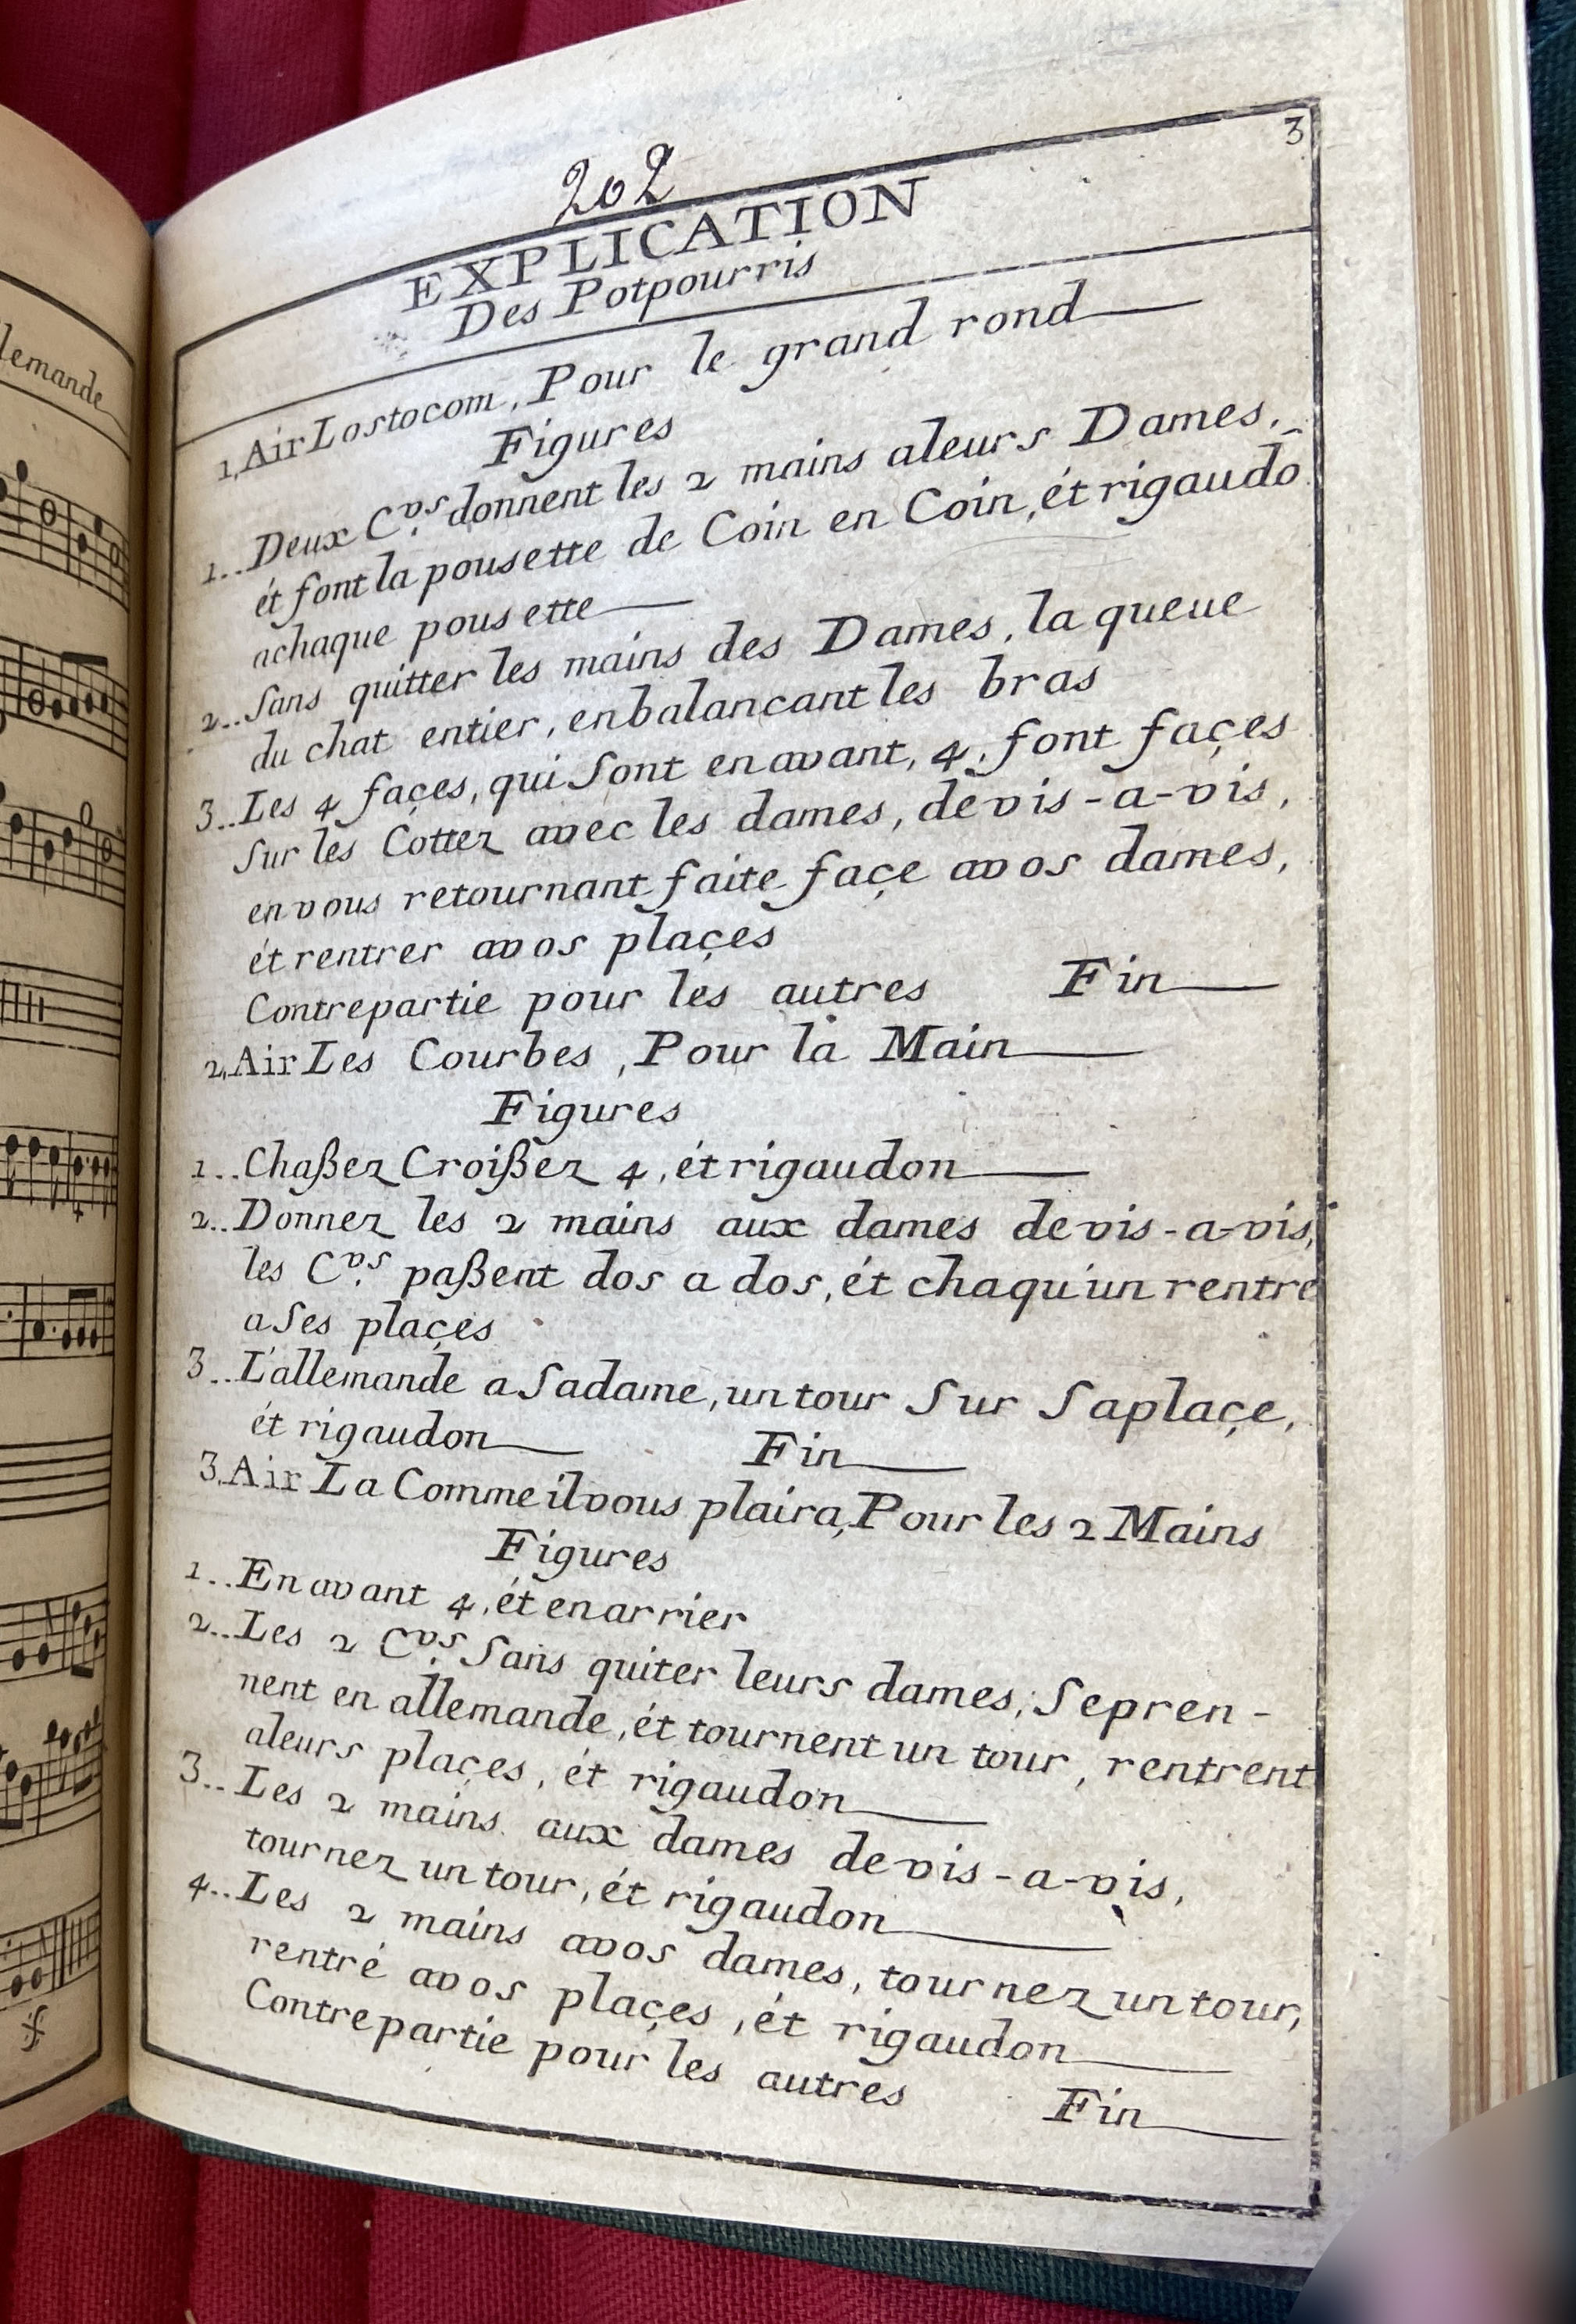 lemande
3
202
EXPLICATION
Des Potpourris
1, Air Lostocom, Pour le grand rond
Figures
1.. Deux C.vs donnent les 2 mains aleurs Dames,
ét font la pousette de Coin en Coin, ét rigaudõ
achaque pousette
2.. Sans quitter les mains des Dames, la queue
du chat entier, enbalancant les bras
3.. Les 4 façes, qui Sont enavant, 4, font façes
Sur les Cottez avec les dames, devis-a-vis,
envous retournant faite façe avos dames,
ét rentrer avos plaçes
Contrepartie pour les autres Fin
2, Air Les Courbes, Pour la Main
Figures
1.. Chaßez Croißez 4, ét rigaudon
2.. Donnez les 2 mains aux dames devis-a-vis,
les C.vs paßent dos a dos, ét chaqu'un rentre
a Ses plaçes
3.. L'allemande a Sadame, un tour Sur Saplaçe,
ét rigaudon Fin
3, Air La Comme ilvous plaira, Pour les 2 Mains
Figures
1.. Enavant 4, ét enarrier
2.. Les 2 C.vs Sans quiter leurs dames, Sepren-
nent en allemande, ét tournent un tour, rentrent
aleurs plaçes, ét rigaudon
3.. Les 2 mains aux dames devis-a-vis,
tournez un tour, ét rigaudon
4.. Les 2 mains avos dames, tournez un tour,
rentré avos plaçes, ét rigaudon
Contrepartie pour les autres Fin